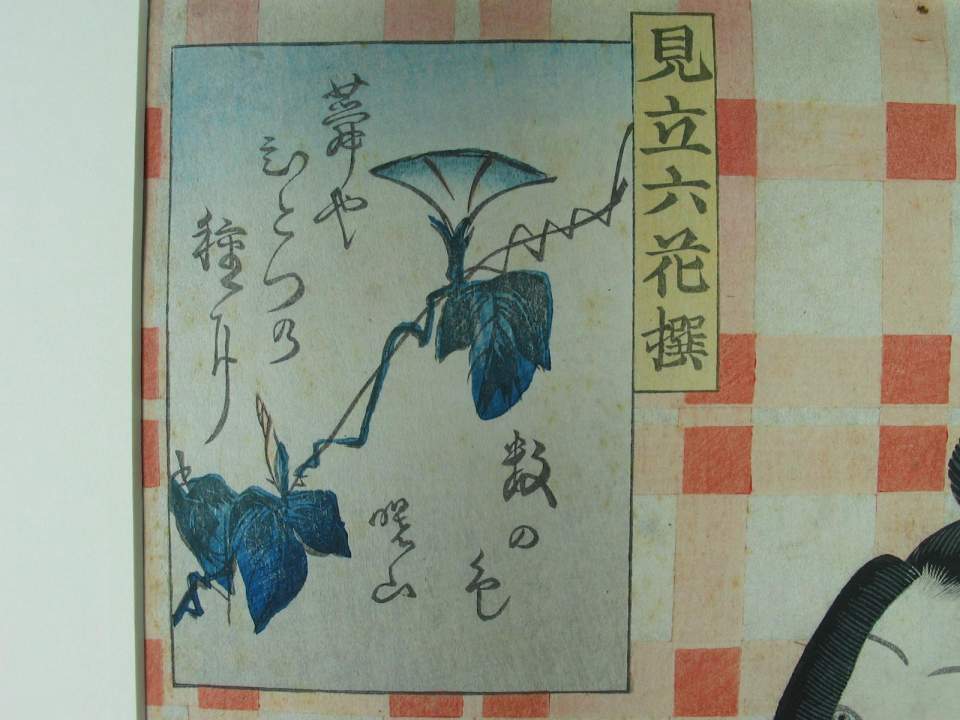 見立六花撰
蕣や
ひとつの
種に
数の色
曙山